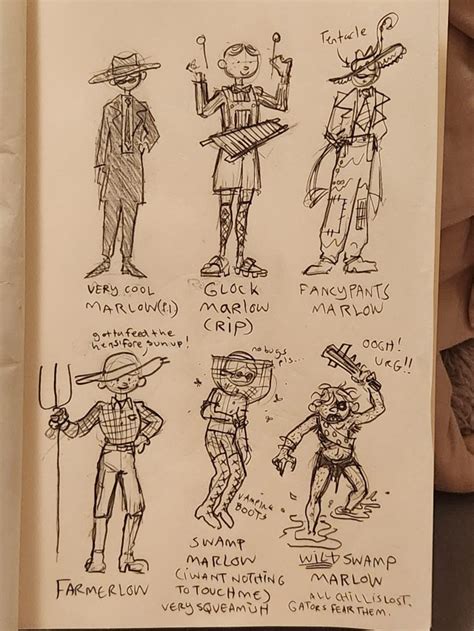 Tentacle
VERY COOL
MARLOW
GLOCK
MARLOW
(RIP)
FANCYPANTS
MARLOW
gotta feed the
hens fore sun up!
no bugs
pls...
OOGH!
URG!!
FARMERLOW
VAMPING
BOOTS
SWAMP
MARLOW
(I WANT NOTHING
TO TOUCH ME)
VERY SQUEAMISH
WILD SWAMP
MARLOW
ALL CHILL IS LOST.
GATORS FEAR THEM.